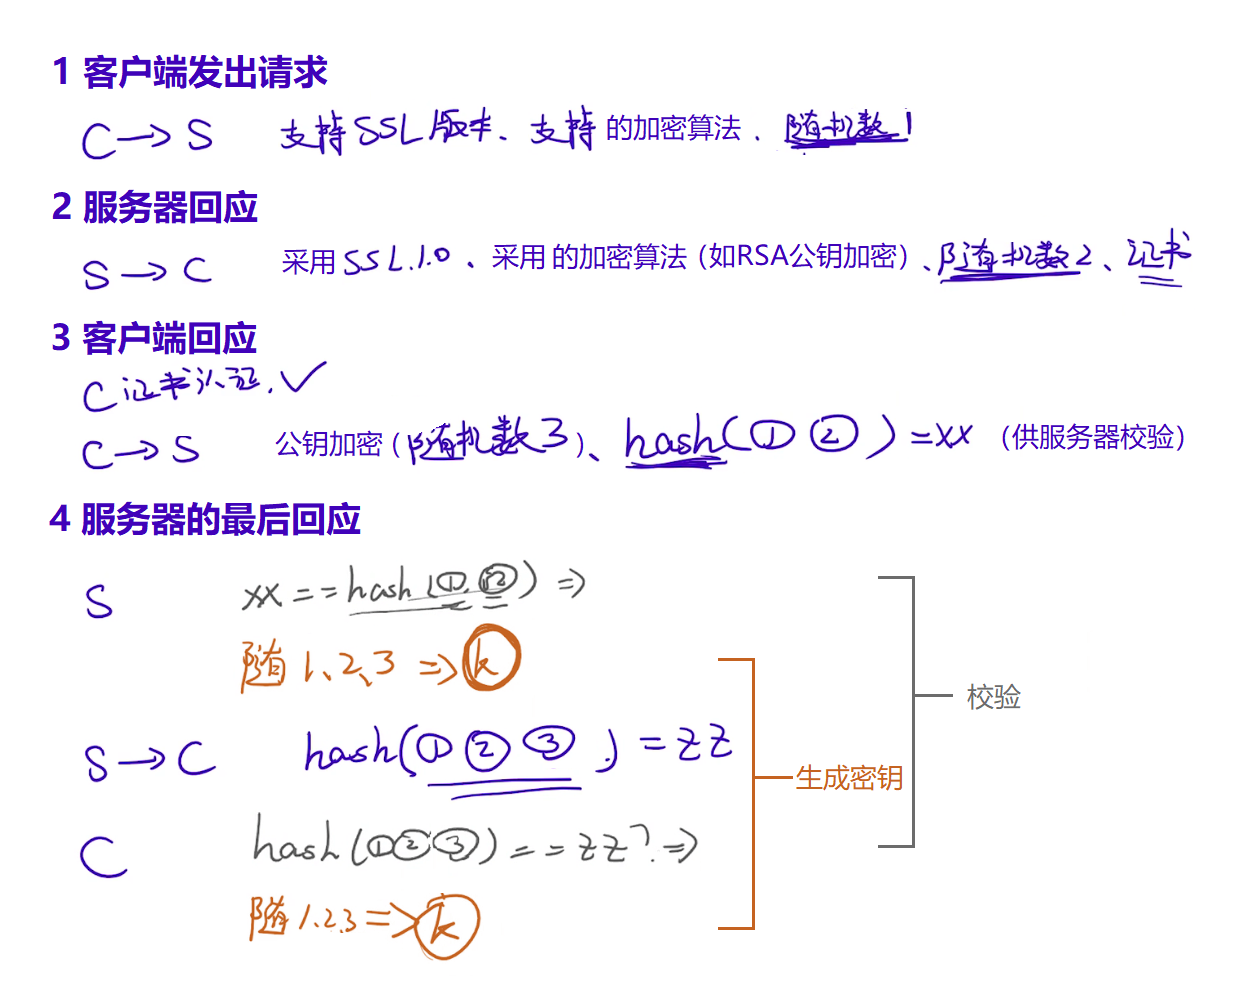 1 客户端发出请求
C→S 支持SSL版本、支持的加密算法、随机数1
2 服务器回应
S→C 采用SSL.1.0、采用的加密算法（如RSA公钥加密）、随机数2、证书
3 客户端回应
C 证书认证.✓
C→S 公钥加密（随机数3）、hash(① ②)=xx （供服务器校验）
4 服务器的最后回应
S xx==hash(①.②)⇒
随1、2、3⇒k
S→C hash(①②③)=zz
C hash(①②③)==zz?.⇒
随1.2.3⇒k
校验
生成密钥